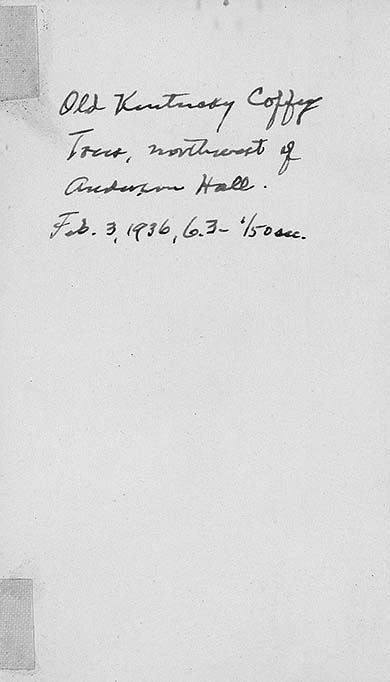 Old Kentucky Coffee
Trees, northwest of
Anderson Hall.
Feb. 3, 1936, 6.3 - 1/50 sec.